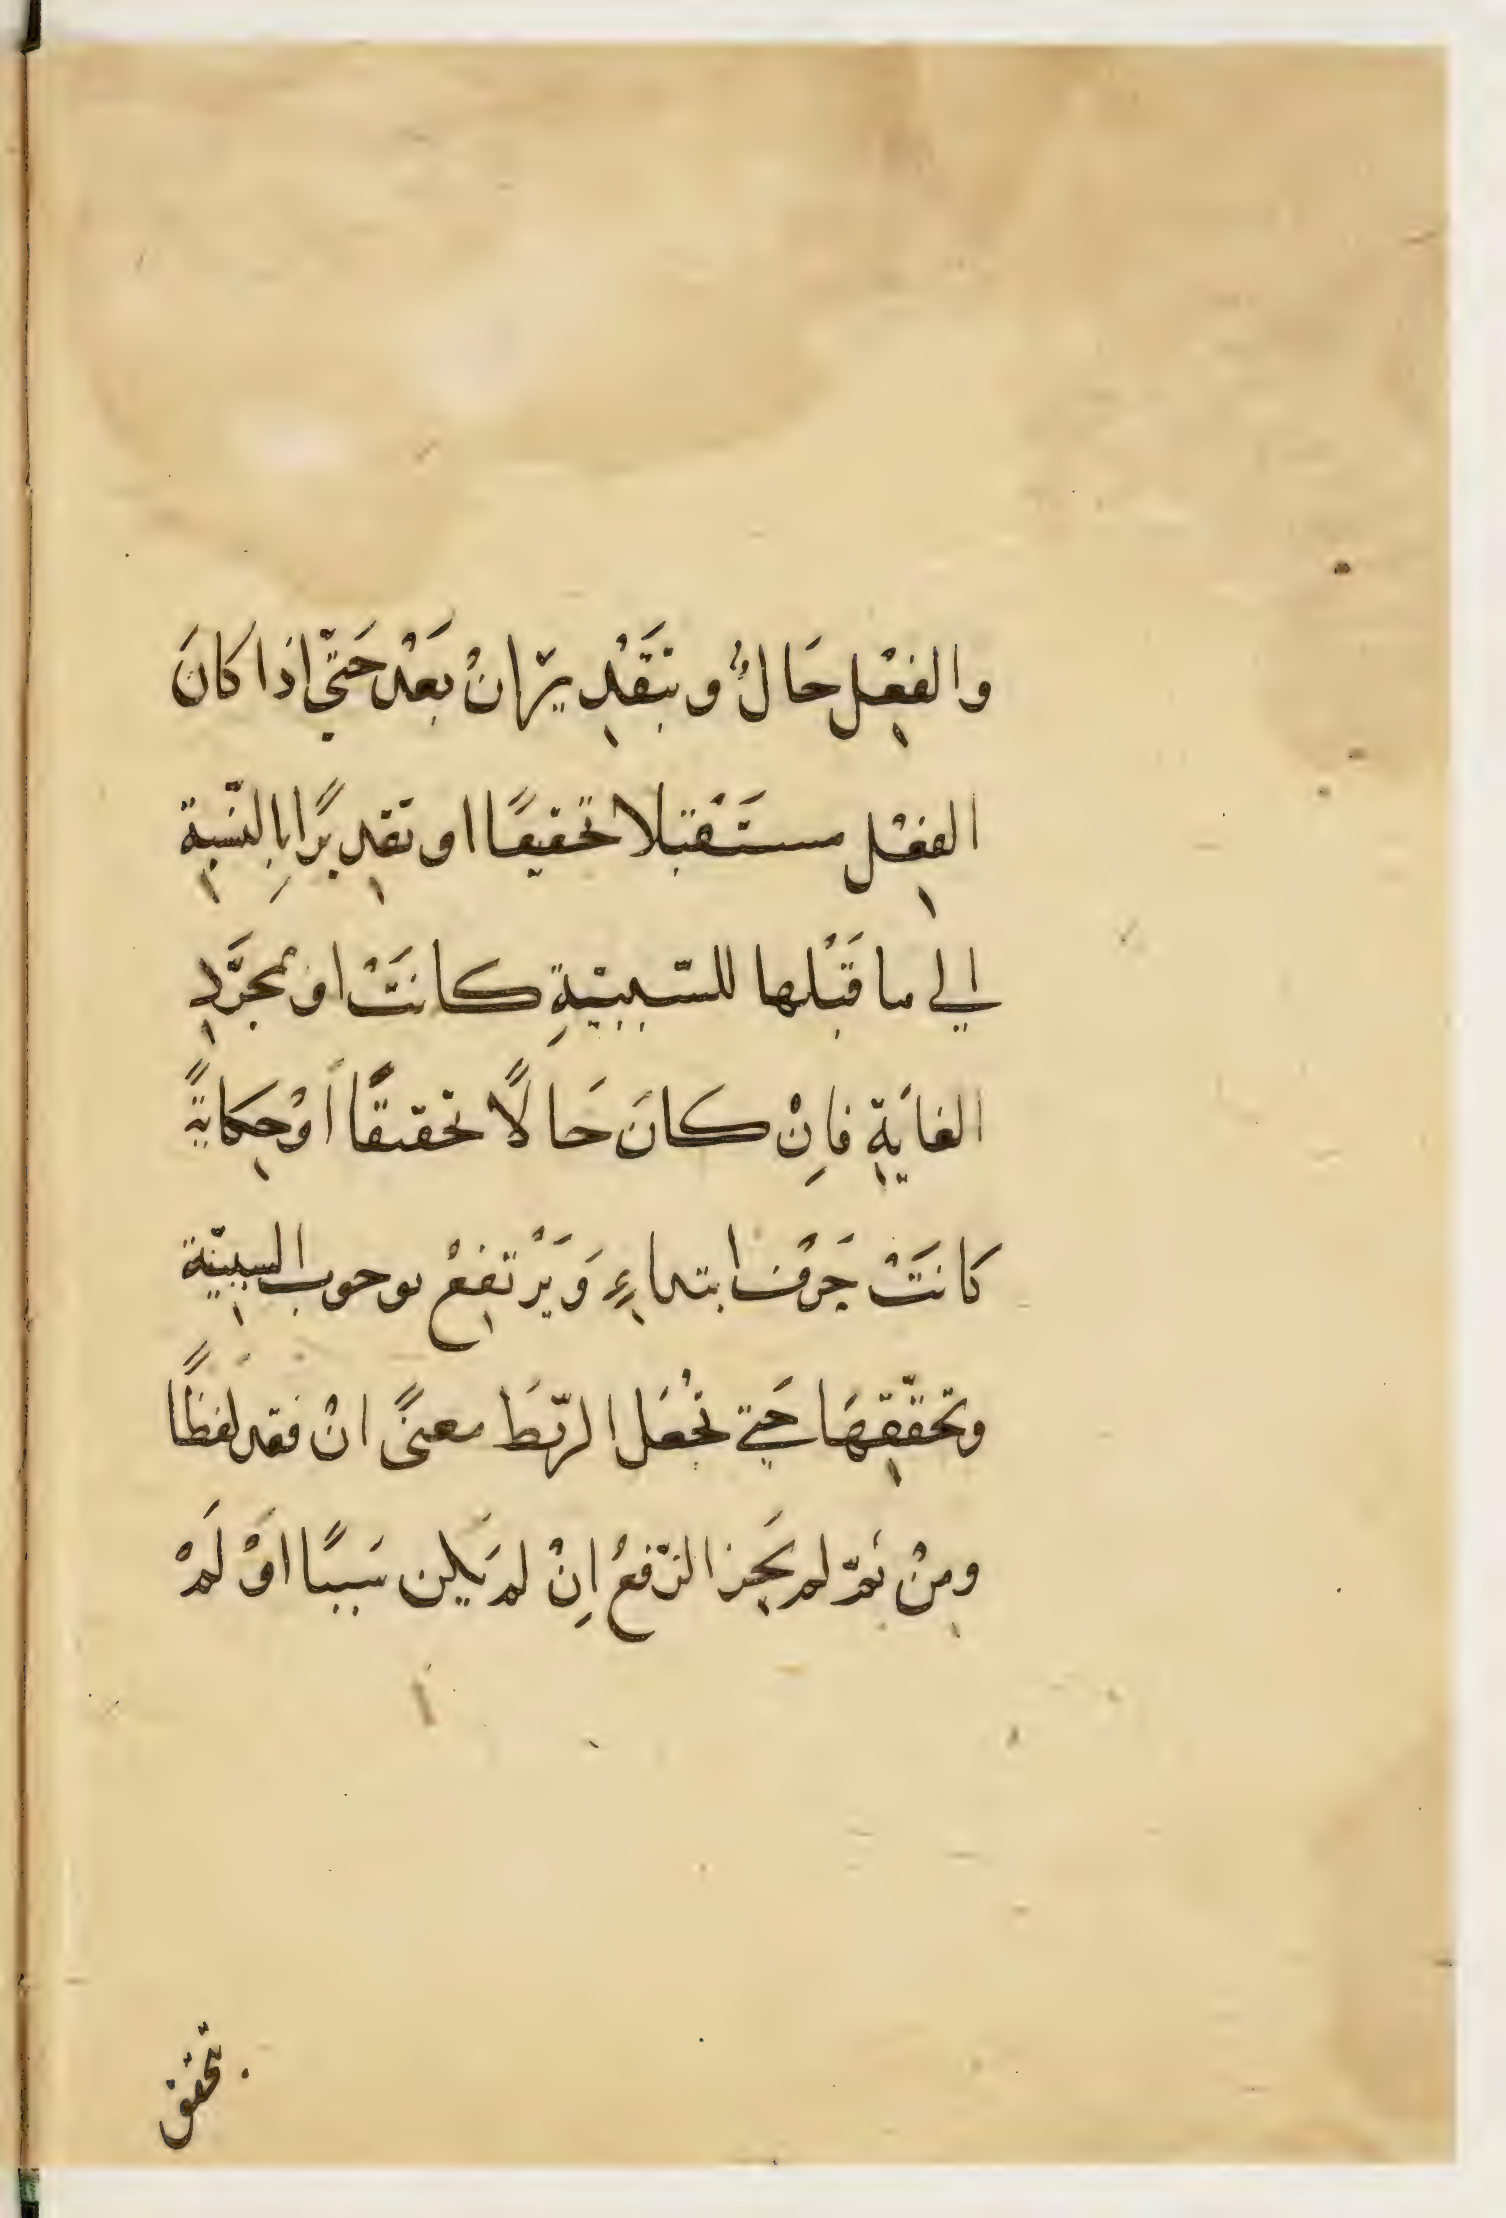 والفِعْل حَالٌ وبتَقْدِيرَانْ بَعْد حَتّي اذا كانَ
الفِعْل مستَقْبلا تحقيقًا او تقدِيرًا بِالنّسبِة
الي ما قَبْلها للسّببيّةِ كانَتْ اوْ لمجرَّدِ
الغايَةِ فاِنْ كانَ حَالًا تحقيقًا أوْحِكَايةً
كانَتْ حَرْفَ ابتداءٍ وَيَرْتفِعْ لوجوب السببِيّة
وتحقّقِهَا حَتي تجْعَل الربّطَ معنىً انْ فقد لفظًا
ومِنْ ثَمّ لم يَجِز الرّفعُ اِنْ لم يَكن سَببًا اوْ لَمْ
تحقق